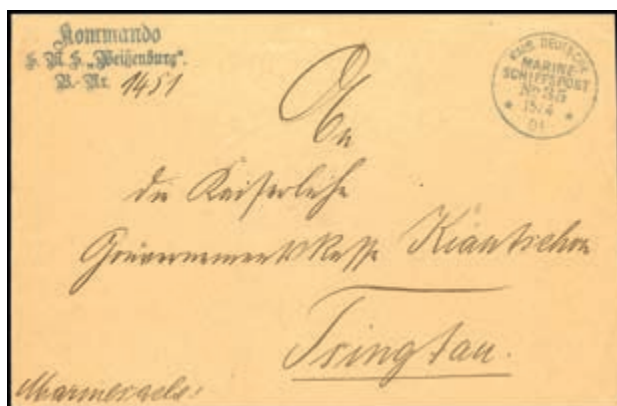 Kommando
S. M. S. „Weißenburg“.
B.-Nr. 1451
KAIS. DEUTSCHE
MARINE-
SCHIFFSPOST
No 35
15/4
01
An
die Kaiserliche
Gouvernementskasse Kiautschou
Tsingtau.